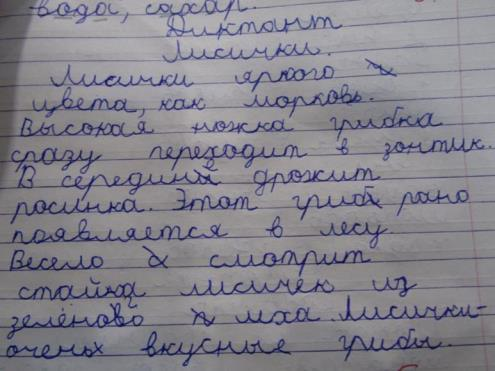 вода, сахар.
Диктант
Лисички.
Лисички яркого
цвета, как морковь.
Высокая ножка грибка
сразу переходит в зонтик.
В середины дрожит
росинка. Этот гриб рано
появляется в лесу.
Весело смотрит
стайка лисичек из
зелёново мха. Лисички-
очень вкусные грибы.